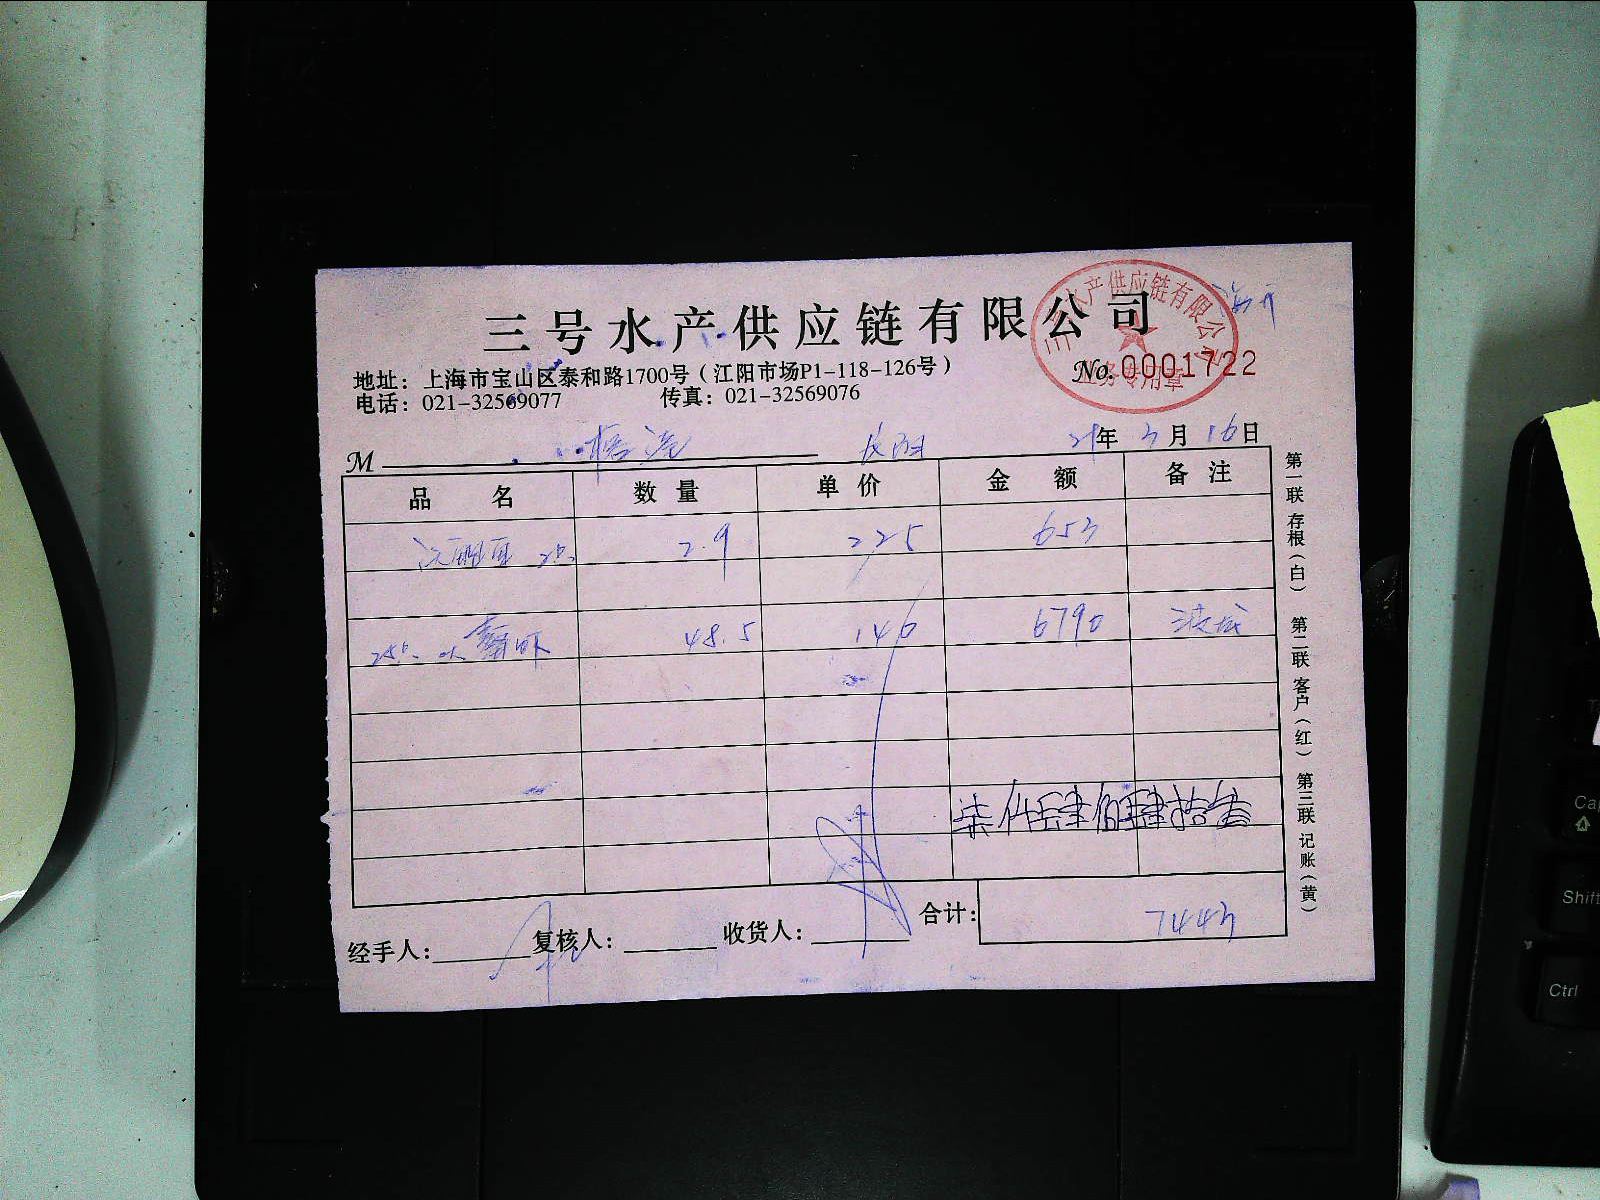 三号水产供应链有限公司
三号水产供应链有限公司
业务专用章
No. 0001722
地址：上海市宝山区泰和路1700号（江阳市场P1-118-126号）
电话：021-32569077 传真：021-32569076
M 21年3月16日
品名 数量 单价 金额 备注
2.9 225 653
48.5 140 6790
柒仟肆佰肆拾叁
合计： 7443
经手人： 复核人： 收货人：
第一联 存根（白） 第二联 客户（红） 第三联 记账（黄）
Shift
Ctrl